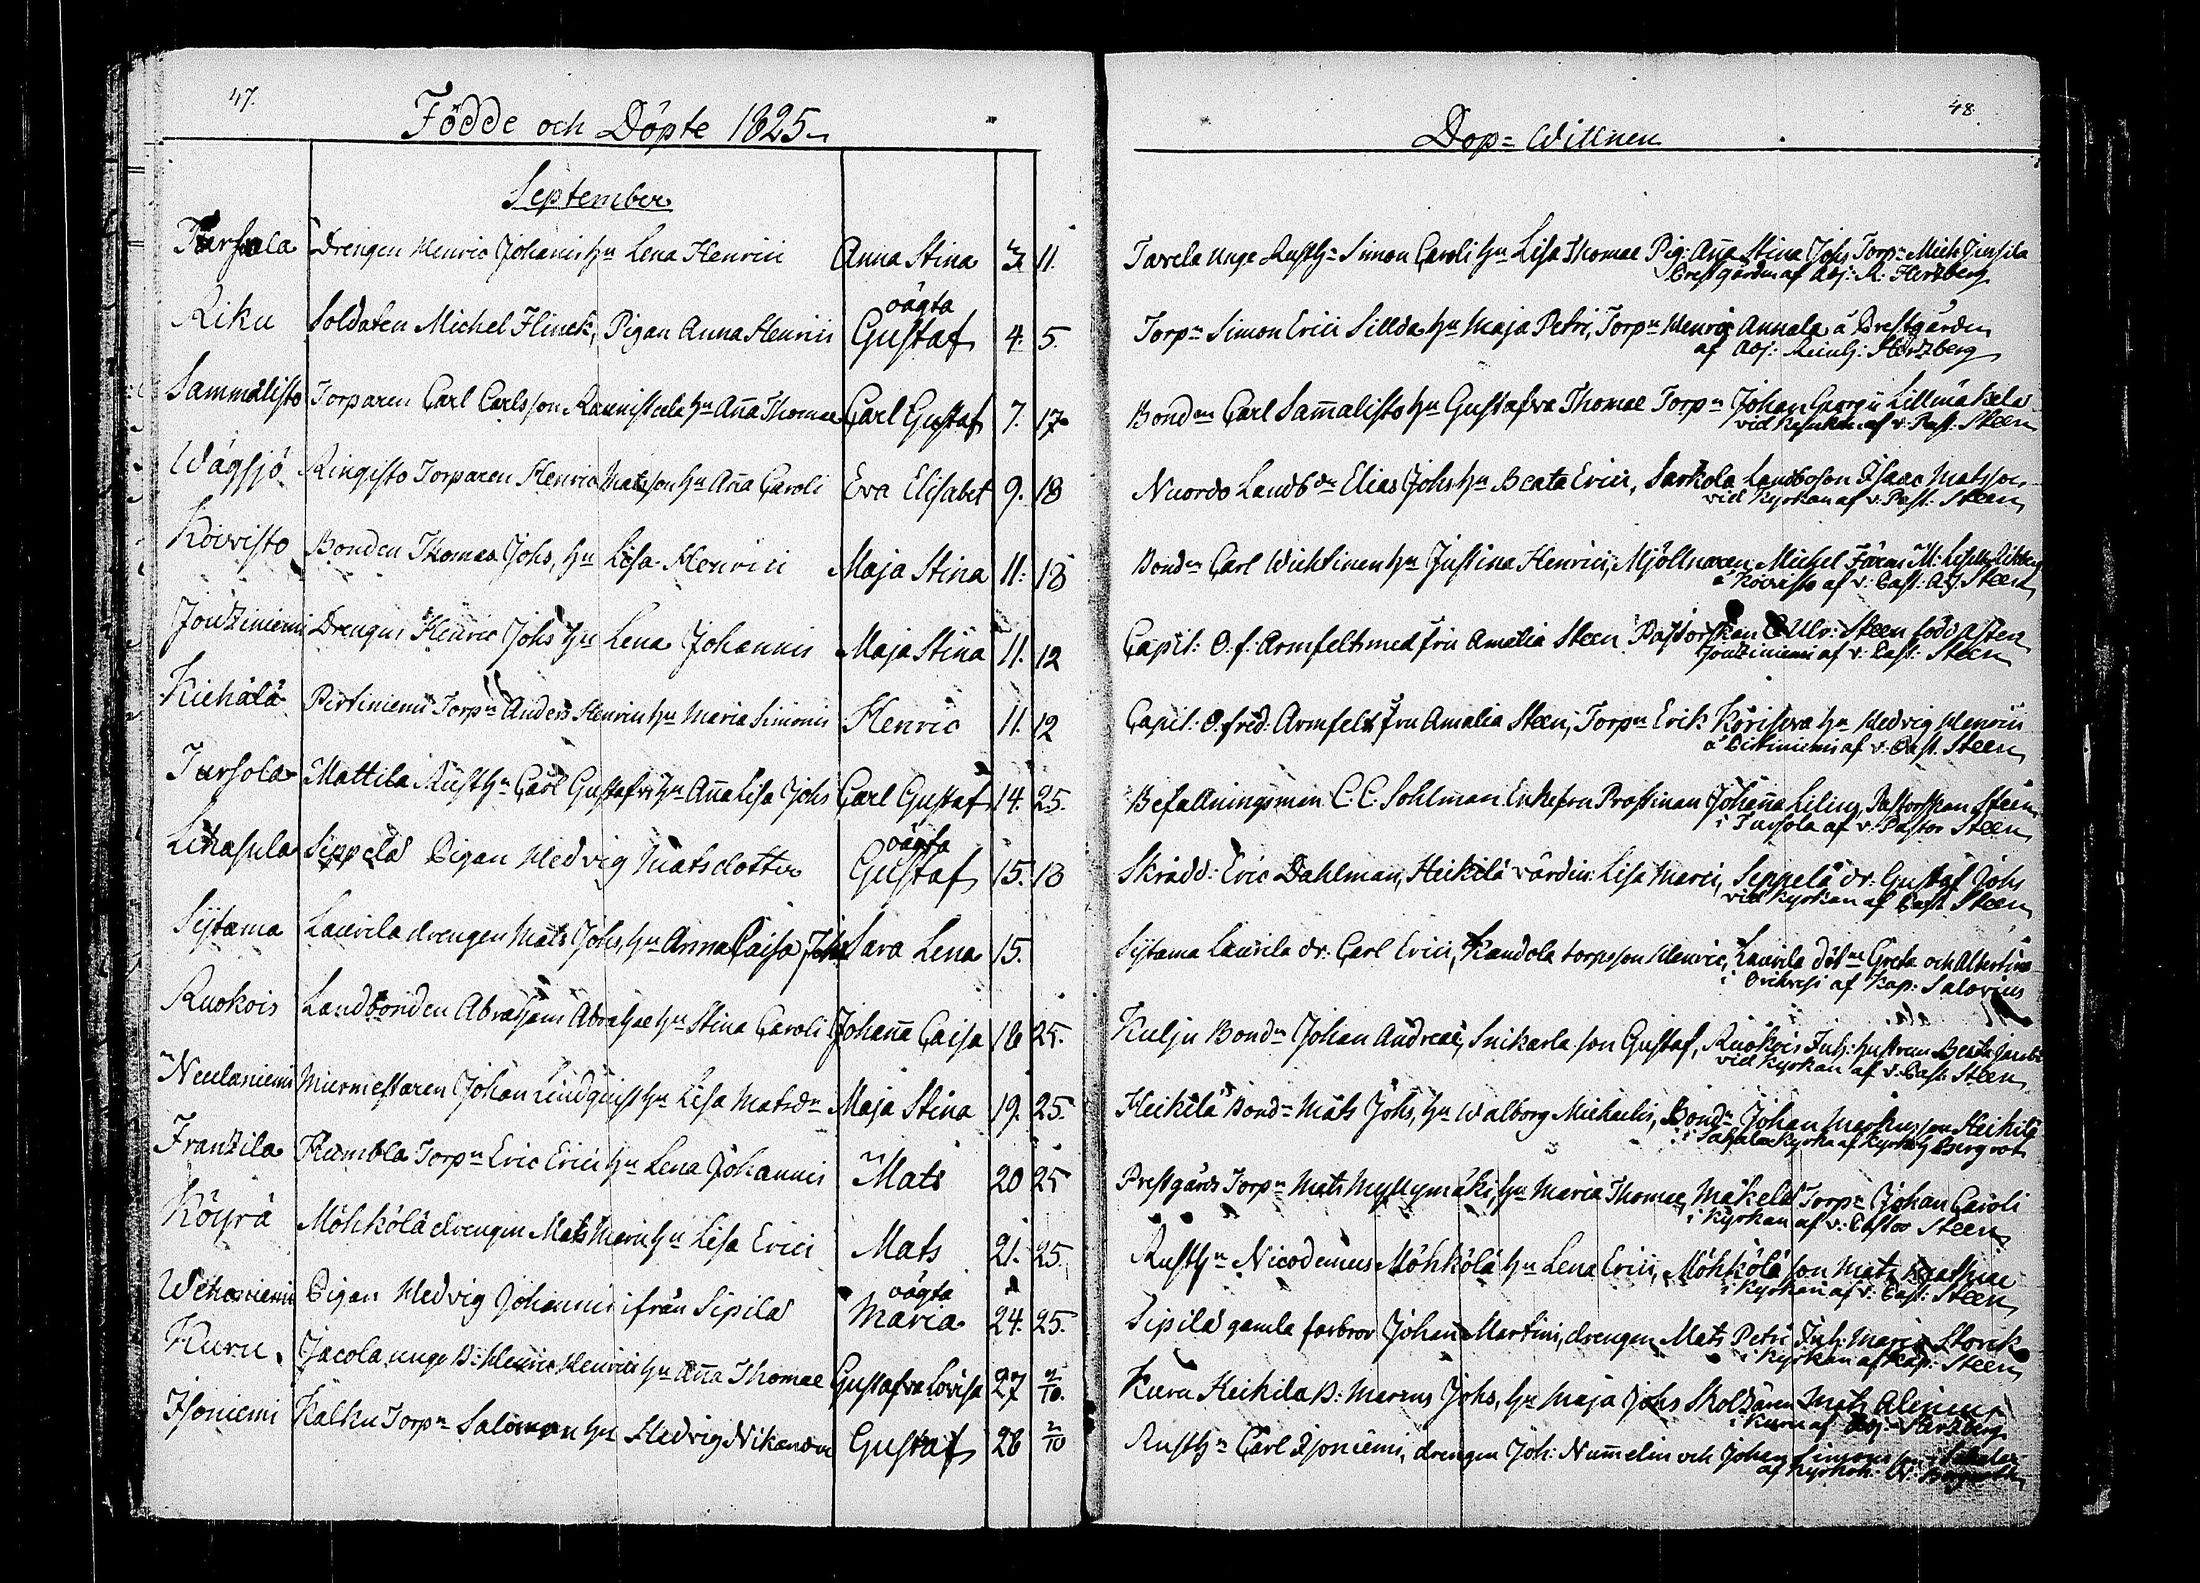 47.
Födde och Döpte 1825
September
Tursula Drengen Henric Johannis hu Lena Henrici Anna Stina 3 11.
oägta
Riku Soldaten Michel Flinck, Pigan Anna Henrici Gustaf 4. 5.
Sammalisto Torparen Carl Carlsson Raunistola hu Aña Thomae Carl Gustaf 7. 17.
Wågsjö Ringisto Torparen Henric Matsson hu Aña Caroli Eva Elisabet 9. 18
Koivisto Bonden Thomas Johs, hu Lisa Henrici Maja Stina 11. 18
Joutziniemi Drengen Henric Johs hu Lena Johannis Maja Stina 11. 12
Kiehälä Pirtiniemi Torpn Anders Henrici hu Maria Simonis Henric 11. 12
Tursola Mattila Rusth Carl Gustafss hu Aña Lisa Johs Carl Gustaf 14. 25.
oägta
Sippola Pigan Hedvig Matsdotter Gustaf 15. 18
Sijtama Laurila drengen Mats Johs, hu Anna Caisa Johs Sara Lena 15.
Ruokois Landbonden Abraham Abrahae hu Stina Caroli Johaña Caisa 18 25.
Neulaniemi Murmestaren Johan Lindquist hu Lisa Matsdr Maja Stina 19. 25.
Frantzila Rumbla Torpn Eric Erici hu Lena Johannis Mats 20 25
Köyrä Möhkölä drengen Mats Marci hu Lisa Erici Mats 21. 25.
oägta
Wehoniemi Pigan Hedvig Johannis ifrån Sipilä Maria 24. 25.
Kuru Jacola unge B: Henric Henrici hu Aña Thomae Gustafva Lovisa 27 2/10.
Isoniemi Kalku Torpn Salomon hu Hedvig Nikander Gustaf 28 2/10
48.
Dop=Wittnen
Tavela unge Rusth Simon Caroli hu Lisa Thomae Pig: Aña Stina Johs Torpn Mich
Prestgården af Adj: R. Hertzberg
Torpn Simon Erici Sillda hu Maja Petri, Torpn Henric Annala å Prestgården
af Adj: Hertzberg
Bondn Carl Sam̃alisto hu Gustafva Thomae Torpn Johan Georgii Lillmäkelä
vid Kyrkan af v. Past. Steen
Nuordo Landbdn Elias Johs hu Beata Erici, Sarkola Landboson Isaac Matsson
vid Kyrkan af v. Past: Steen
Bondn Carl Wichtinen hu Justina Henrici, Mjöllnaren Michel
å Koivisto af v: Past: Steen
Capit: O. f: Armfelt med fru Amalia Steen Pastorskan Ulr: Steen född Asten
Joutziniemi af v: Past: Steen
Capit: O. fred: Armfelt fru Amalia Steen, Torpn Erik hu Hedvig Henrici
å Pirtiniemi af v: Past. Steen
Befallningsman C: C: Sohlman Enkefru Prostinnan Johaña Lilius, Pastorskan Steen
i Tursola af v: Pastor Steen
Skrädd: Eric Dahlman, Heikilä värdin: Lisa Marci, Seppelä dr: Gustaf Johs
vid Kyrkan af Past. Steen
Sijtama Laurila dr: Carl Erici, Kandola torpsson Henric, Laurila döt: Greta och Albertina
i Orihvesi af Kap: Salovius
Kulju Bondn Johan Andreae, Snikarla son Gustaf, Ruokois Inh: hustrun Beata Jacobi
vid Kyrkan af v: Past: Steen
Heikilä Bondn Mats Johs, hu Walborg Michaelis, Bondn Johan Markusson Heikilä
i Sahalax Kyrka af Kyrkoh Bergroth
Prestgårds Torpn Mats Myllymäki, hu Maria Thomae, Mäkelä Torpn Johan Caroli
i Kyrkan af v. Pastor Steen
Rusth Nicodemus Möhkölä hu Lena Erici, Möhkölä son Mats
i Kyrkan af v: Past: Steen
Sipilä gamla farbror Johan Martini, drengen Mats Petri Inh: Maria Storck
i Kyrkan af Kap: Steen
Kuru Heikila B: Marcus Johs, hu Maja Johs Skolzären Mats Alenius
i Kuru af Adj: Hertzberg
Rusth Carl Isoniemi, drengen Joh: Num̃elin och Johan Simonsson i Sahalax
af Kyrkoh: